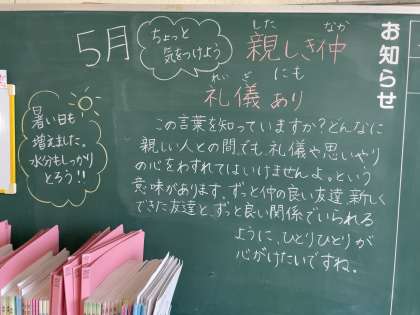 お知らせ
5月
ちょっと
気をつけよう
親しき仲
した
なか
にも
礼儀あり
れい
ぎ
暑い日も
増えました。
水分もしっかり
とろう!!
この言葉を知っていますか?どんなに
親しい人との間でも、礼儀や思いやり
の心をわすれてはいけませんよ。という
意味があります。ずっと仲の良い友達、新しく
できた友達と、ずっと良い関係でいられる
ように、ひとりひとりが
心がけたいですね。